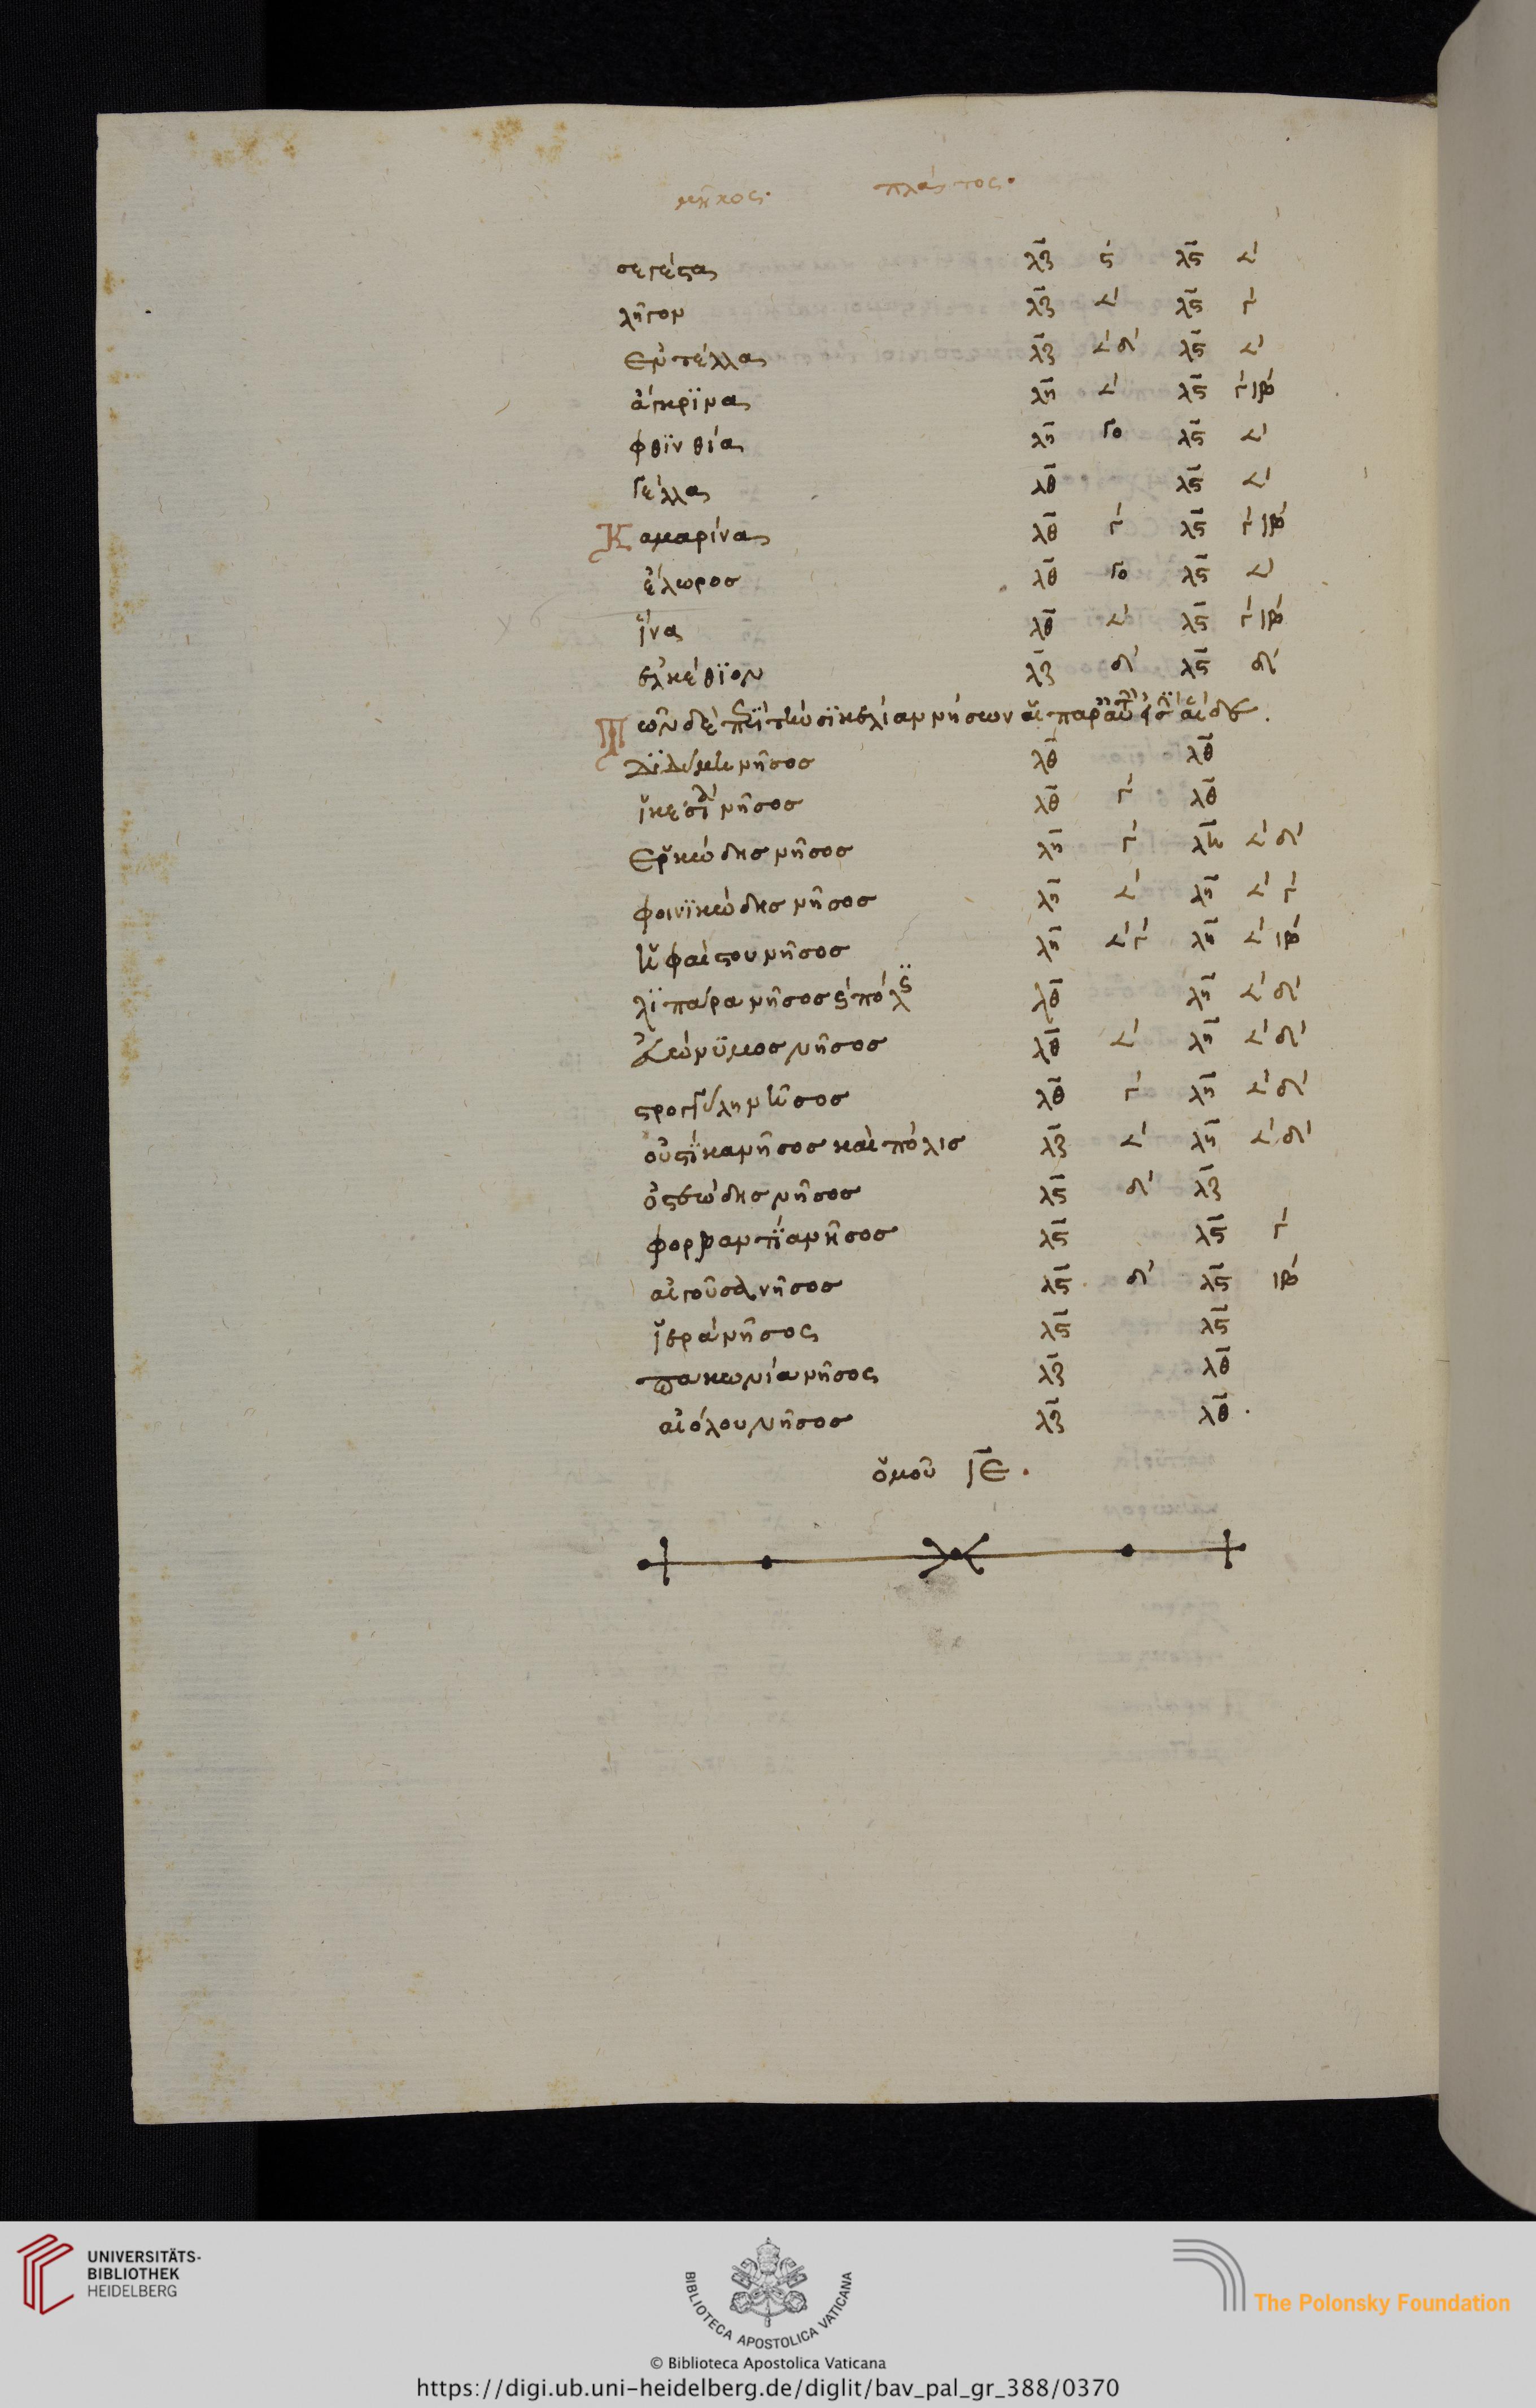 μῆκος. πλάτος.
σεγέςας λζ ϛ λϛ 𐅵
λῆγον λζ 𐅵 λϛ γ
ἐντέλλας λζ 𐅵δ λϛ 𐅵
ἄγκρϊνας λη 𐅵 λϛ γιβ
φθϊνθίας λη γο λϛ 𐅵
γέλλας λθ λϛ 𐅵
Καμαρίνας λθ γ λϛ γιβ
ἕλωρος λθ γο λϛ 𐅵
ἵνας λθ 𐅵 λϛ γιβ
ἑλκέθϊον λζ δ λϛ δ
Τῶν δὲ περὶ τὴν σϊκελίαν νήσων αἱ
Δϊδύμη νῆσος λθ λθ
ἱκεσί νῆσος λθ γ λθ
ἐρϊκώδης νῆσος λη γ λη 𐅵δ
φοινϊκώδης νῆσος λη 𐅵 λη 𐅵γ
ἡφαίςου νῆσος λη 𐅵γ λη 𐅵ιβ
λϊπάρα νῆσος ϛ πόλϛ λθ λη 𐅵δ
εὐώνϋμος νῆσος λθ 𐅵 λη 𐅵δ
ςρογγύλη νῆσος λθ γ λη 𐅵δ
οὐςίκα νῆσος καὶ πόλις λζ 𐅵 λη 𐅵δ
ὀςεώδης νῆσος λϛ δ λζ
φορβαντΐα νῆσος λϛ λϛ γ
αἰγοῦσα νῆσος λϛ δ λϛ ιβ
ἱερὰ νῆσος λϛ λϛ
πακωνία νῆσος λζ λθ
αἰόλου νῆσος λζ λθ.
ὁμοῦ ιε.
UNIVERSITÄTS-
BIBLIOTHEK
HEIDELBERG
BIBLIOTECA APOSTOLICA VATICANA
The Polonsky Foundation
© Biblioteca Apostolica Vaticana
https://digi.ub.uni-heidelberg.de/diglit/bav_pal_gr_388/0370